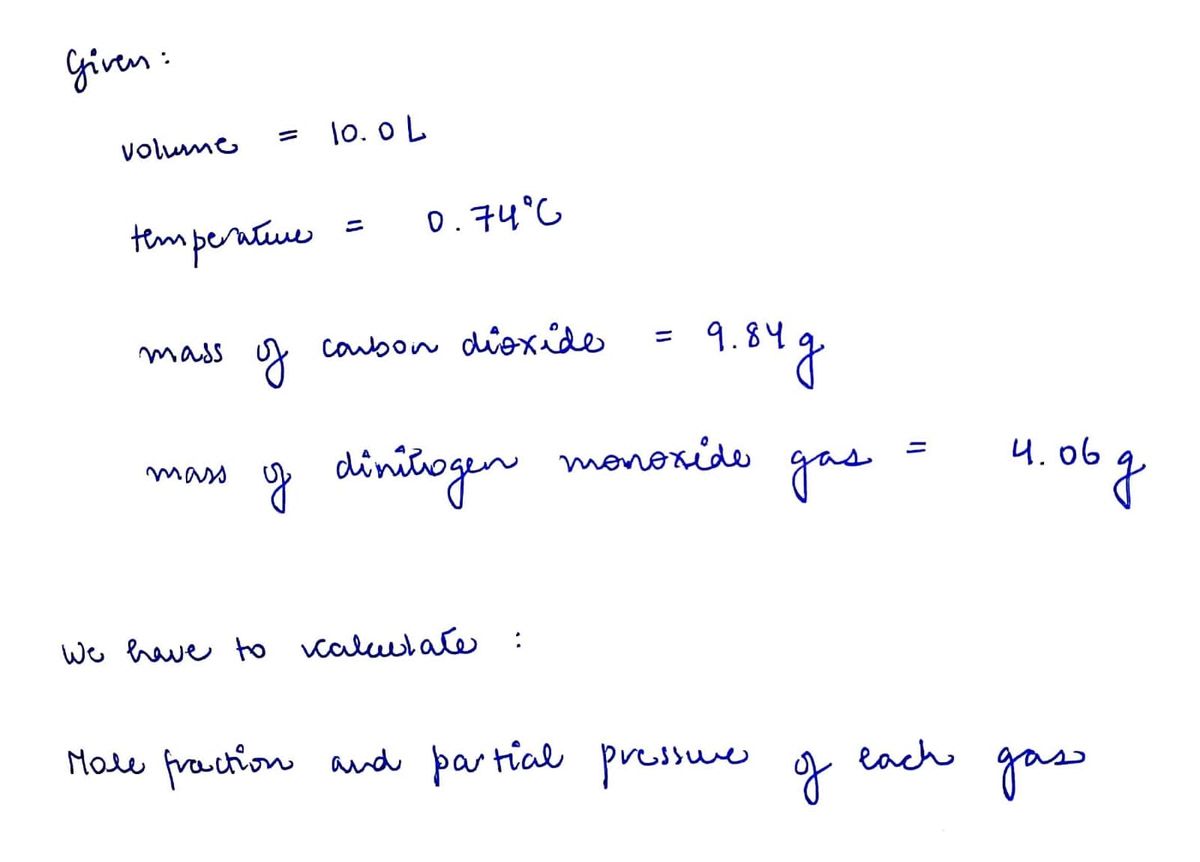 Given:
volume = 10.0 L
temperature = 0.74°C
mass of carbon dioxide = 9.84 g
mass of dinitrogen monoxide gas = 4.06 g
We have to calculate :
Mole fraction and partial pressure of each gas